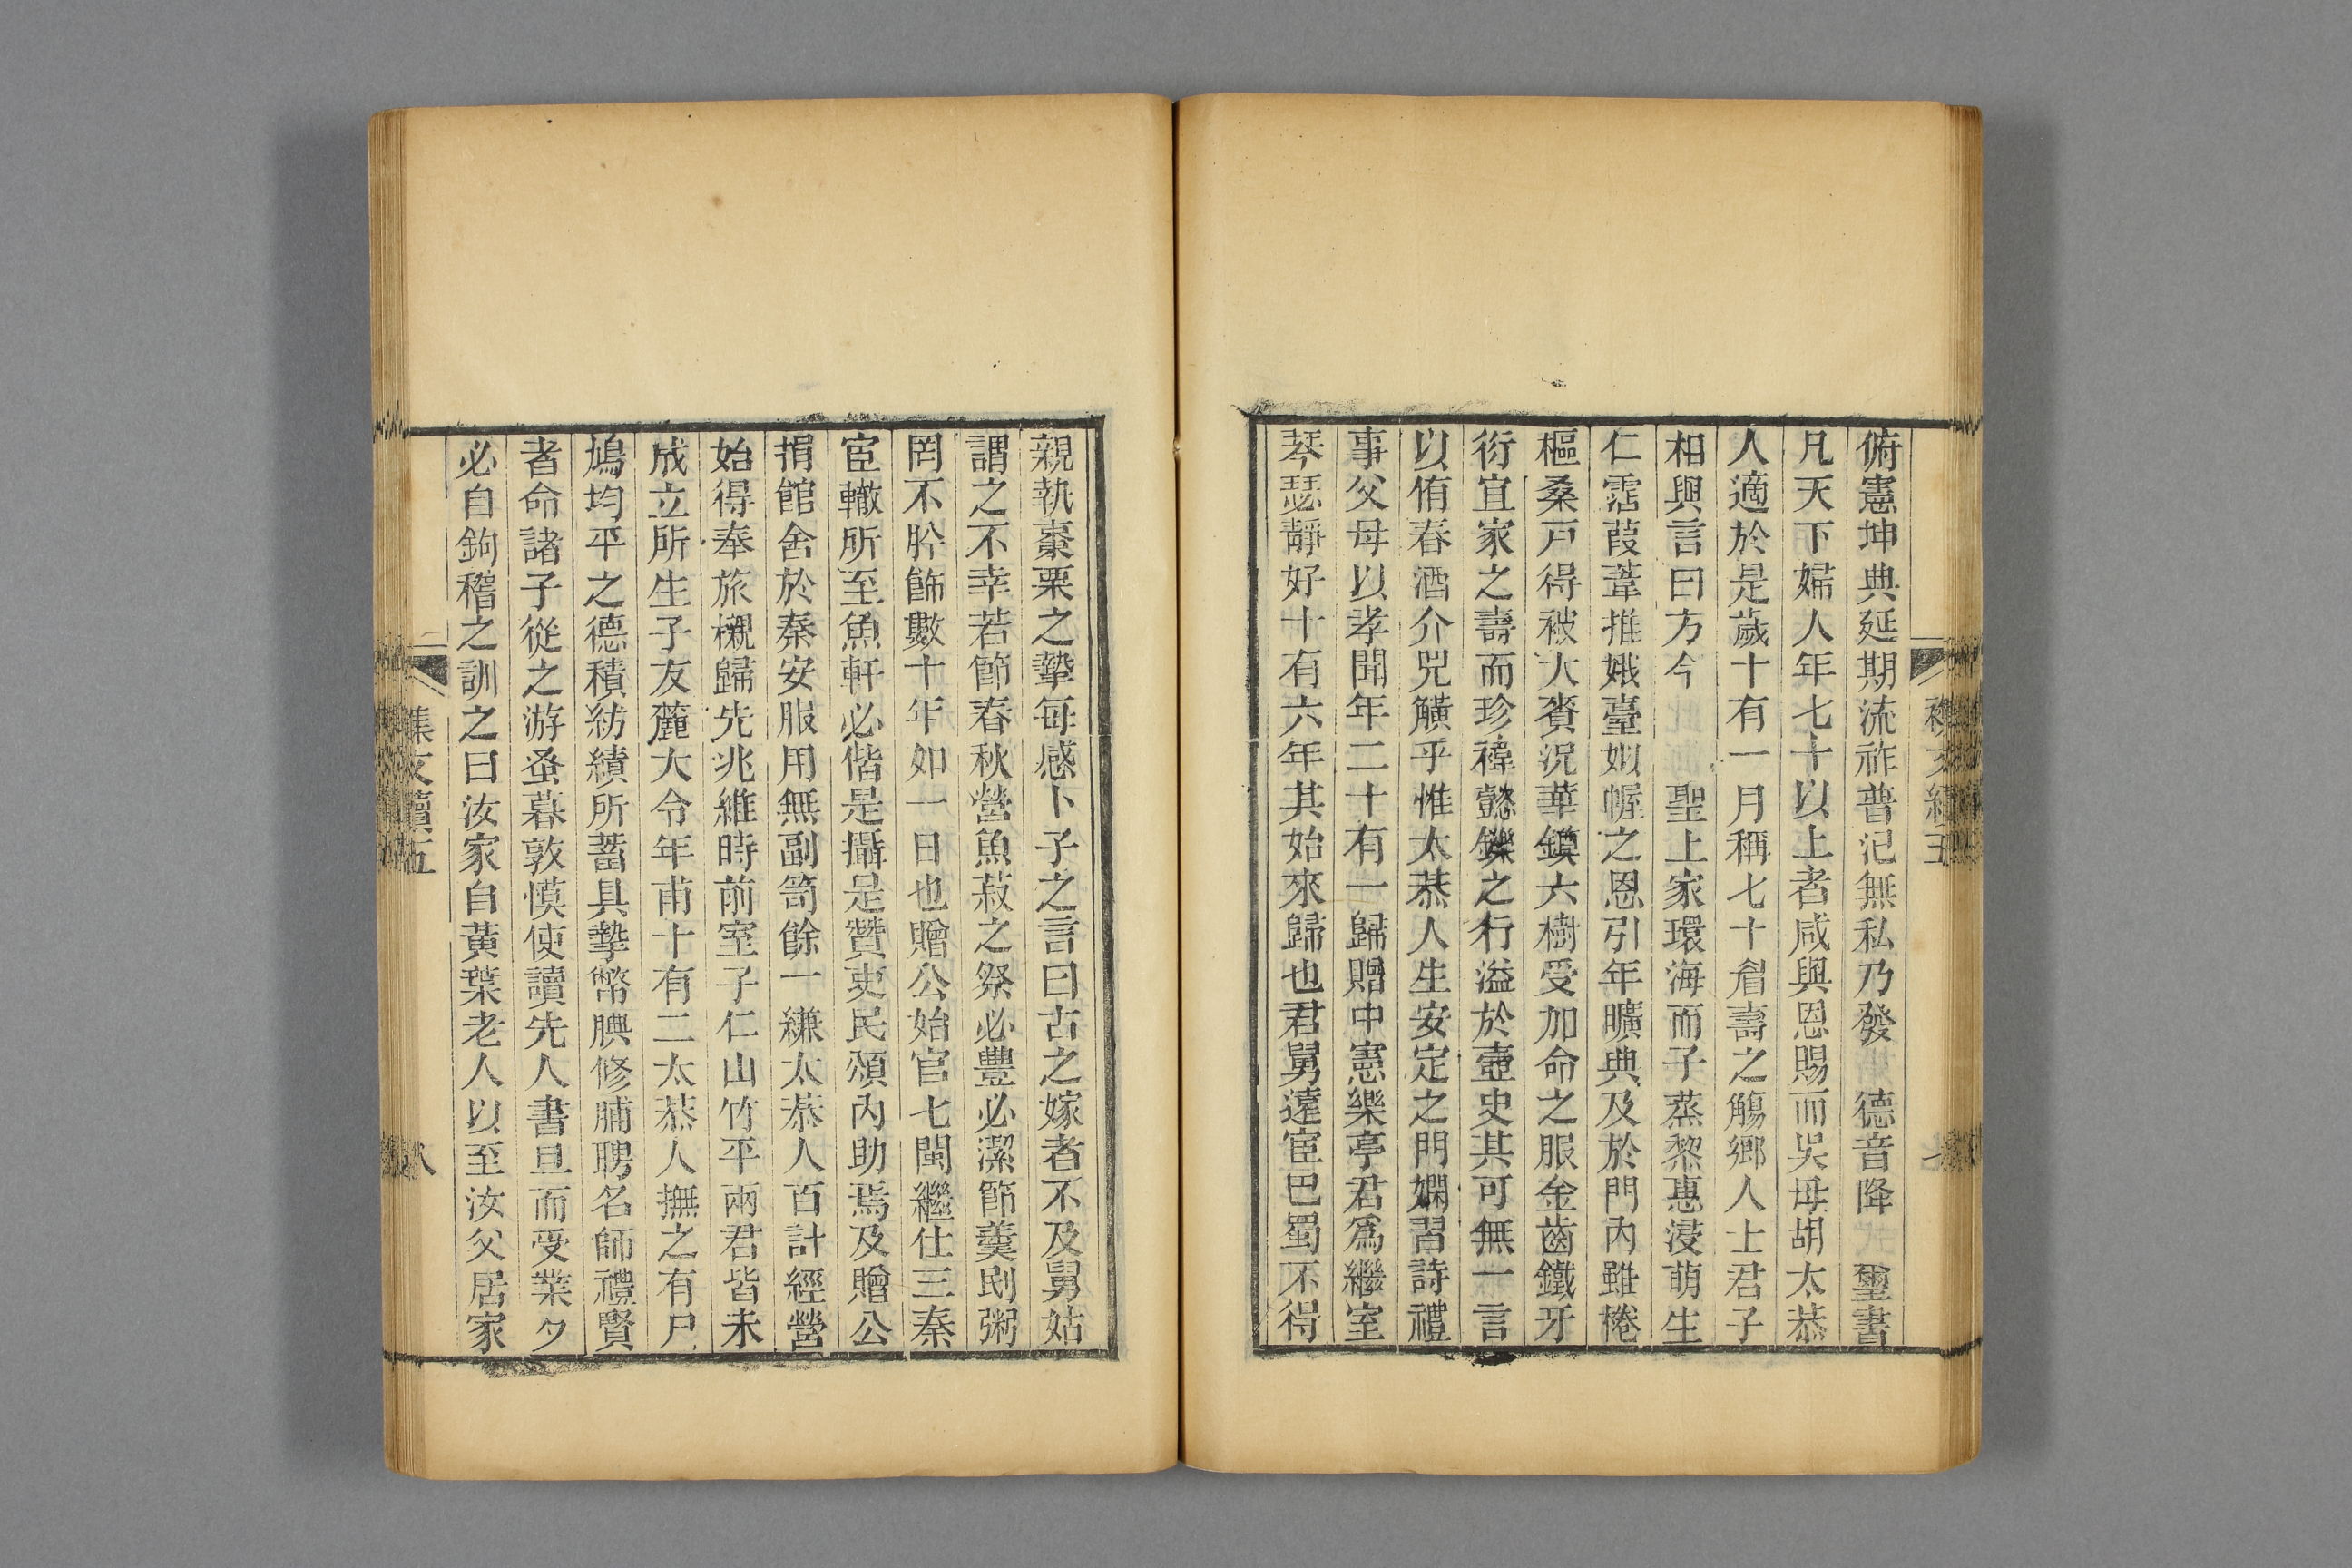 俯憲坤典延期流祚普汜無私乃發　德音降　璽書
凡天下婦人年七十以上者咸與恩賜而吳母胡太恭
人適於是歲十有一月稱七十眉壽之觴鄉人士君子
相與言曰方今　聖上家環海而子蒸黎惠浸萌生
仁霑葭葦推娥臺姒幄之恩引年曠典及於門內雖棬
樞桑戸得被大賚況華鎮六樹受加命之服金齒鐵牙
衍宜家之壽而珍褘懿鑠之行溢於壼史其可無一言
以侑春酒介兕觵乎惟太恭人生安定之門嫻習詩禮
事父母以孝聞年二十有一歸贈中憲樂亭君爲繼室
琴瑟靜好十有六年其始來歸也君舅遠宦巴蜀不得
親執棗栗之摯每感卜子之言曰古之嫁者不及舅姑
謂之不幸若節春秋營魚菽之祭必豐必潔節羹剧粥
罔不肸飾數十年如一日也贈公始官七閩繼仕三秦
宦轍所至魚軒必偕是攝是贊吏民頌內助焉及贈公
捐館舍於秦安服用無副笥餘一縑太恭人百計經營
始得奉旅櫬歸先兆維時前室子仁山竹平兩君皆未
成立所生子友麓大令年甫十有二太恭人撫之有尸
鳩均平之德積紡績所蓄具摯幣腆修脯聘名師禮賢
者命諸子從之游蚤暮敦慔使讀先人書旦而受業夕
必自鉤稽之訓之曰汝家自黃葉老人以至汝父居家
集文續五
八